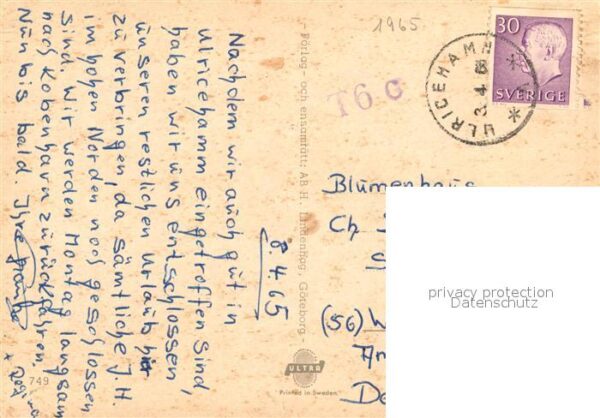 Nachdem wir auch gut in
Ulricehamm eingetroffen sind,
haben wir uns entschlossen
unseren restlichen Urlaub hier
zu verbringen, da sämtliche J.H
im hohen Norden noch geschlossen
sind. Wir werden Montag langsam
nach Kobenhavn zurückfahren.
Nun bis bald. Ihre
8.4.65
- Förlag och ensamrätt: AB H. Lindenhag, Göteborg -
ULTRA
"Printed in Sweden"
749
1965
T6 C
ULRICEHAMN
30
SVERIGE
Blumenhaus
Ch
(56)
privacy protection
Datenschutz